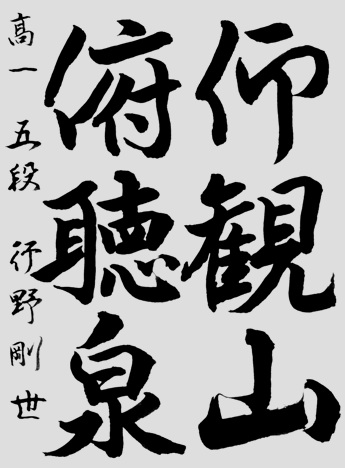 仰観山
俯聴泉
高一 五段 行野剛世